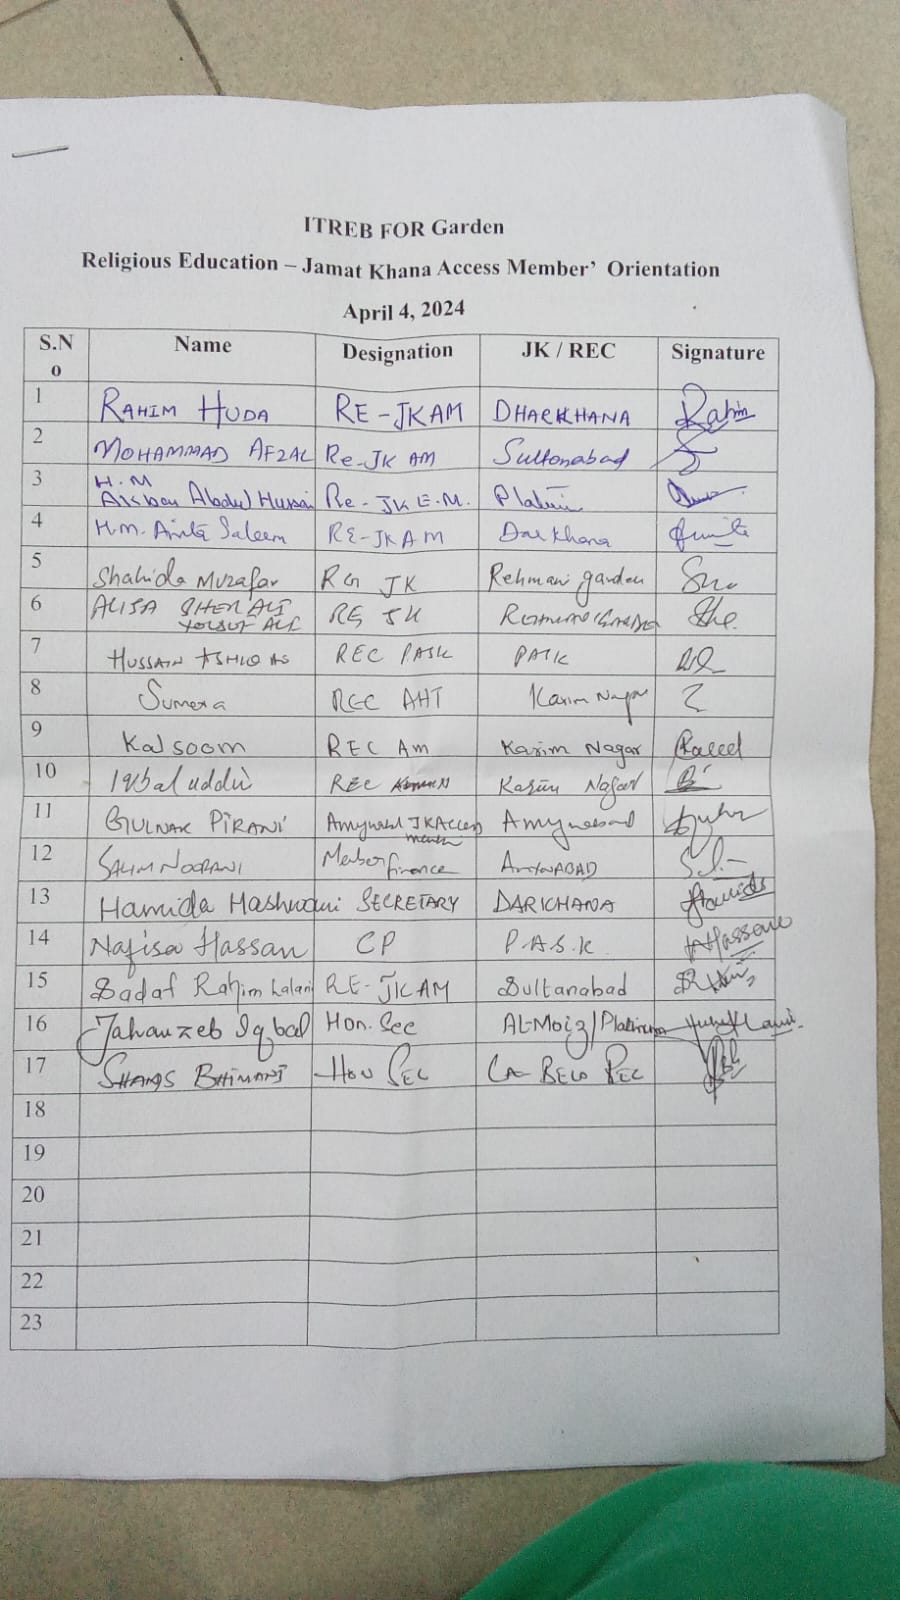 ITREB FOR Garden
Religious Education – Jamat Khana Access Member' Orientation
April 4, 2024
S.No Name Designation JK / REC Signature
1 RAHIM HUDA RE-JKAM DHARKHANA Rahim
2 MOHAMMAD AFZAL Re-JK AM Sultonabad
3 H.M Akbar Abdul Hussai Re-JK E.M. Platin
4 H.m. Anita Saleem RE-JKAM Darkhana
5 Shahida Muzafar JK Rehmani garden
6 ALISA SHER ALI YOUSUF ALI RE JK
7 HUSSAIN REC PASK PASK
8 Sumera REC AHT Karim Nagar
9 Kalsoom REC Am Karim Nagar
10 Iqbal uddin REC Karim Nagar
11 GULNAR PIRANI Amynabad JK Access member Amynabad
12 SALIM NOORANI Member finance AmynABAD
13 Hamida Hashwani SECRETARY DARKHANA Hamida
14 Nafisa Hassan CP P.A.S.K. NHassan
15 Sadaf Rahim Lalani RE-JKAM Sultanabad
16 Jahanzeb Iqbal Hon. Sec AL-Moiz/Platinum
17 SHAMS BHIMANI HON SEC REC
18
19
20
21
22
23